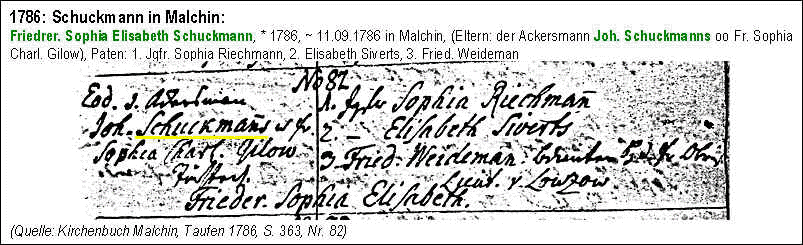 1786: Schuckmann in Malchin:
Friedrer. Sophia Elisabeth Schuckmann, * 1786, ~ 11.09.1786 in Malchin, (Eltern: der Ackersmann Joh. Schuckmanns oo Fr. Sophia
Charl. Gilow), Paten: 1. Jgfr. Sophia Riechmann, 2. Elisabeth Siverts, 3. Fried. Weideman
No 82
Eod. 1. Jgfr Sophia Riechmañ
Joh. Schuckmañs 2 — Elisabeth Siverts
Sophia Charl. Gilow 3 Fried. Weideman
Lieut. v Lowzow
Frieder. Sophia Elisabeth.
(Quelle: Kirchenbuch Malchin, Taufen 1786, S. 363, Nr. 82)